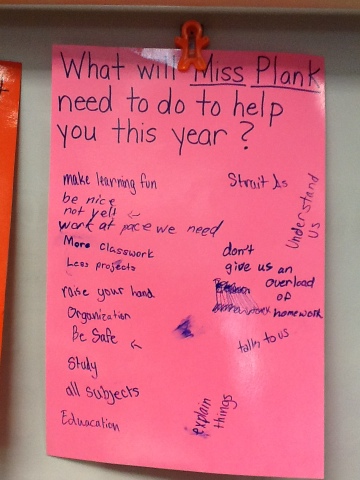 What will Miss Plank
need to do to help
you this year?
make learning fun
be nice
not yell
work at pace we need
More classwork
Less projects
raise your hand
Organization
Be Safe
Study
all subjects
Eduacation
Strait As
Understand
us
don't
give us an
overload
of
homework
talk to us
explain
things